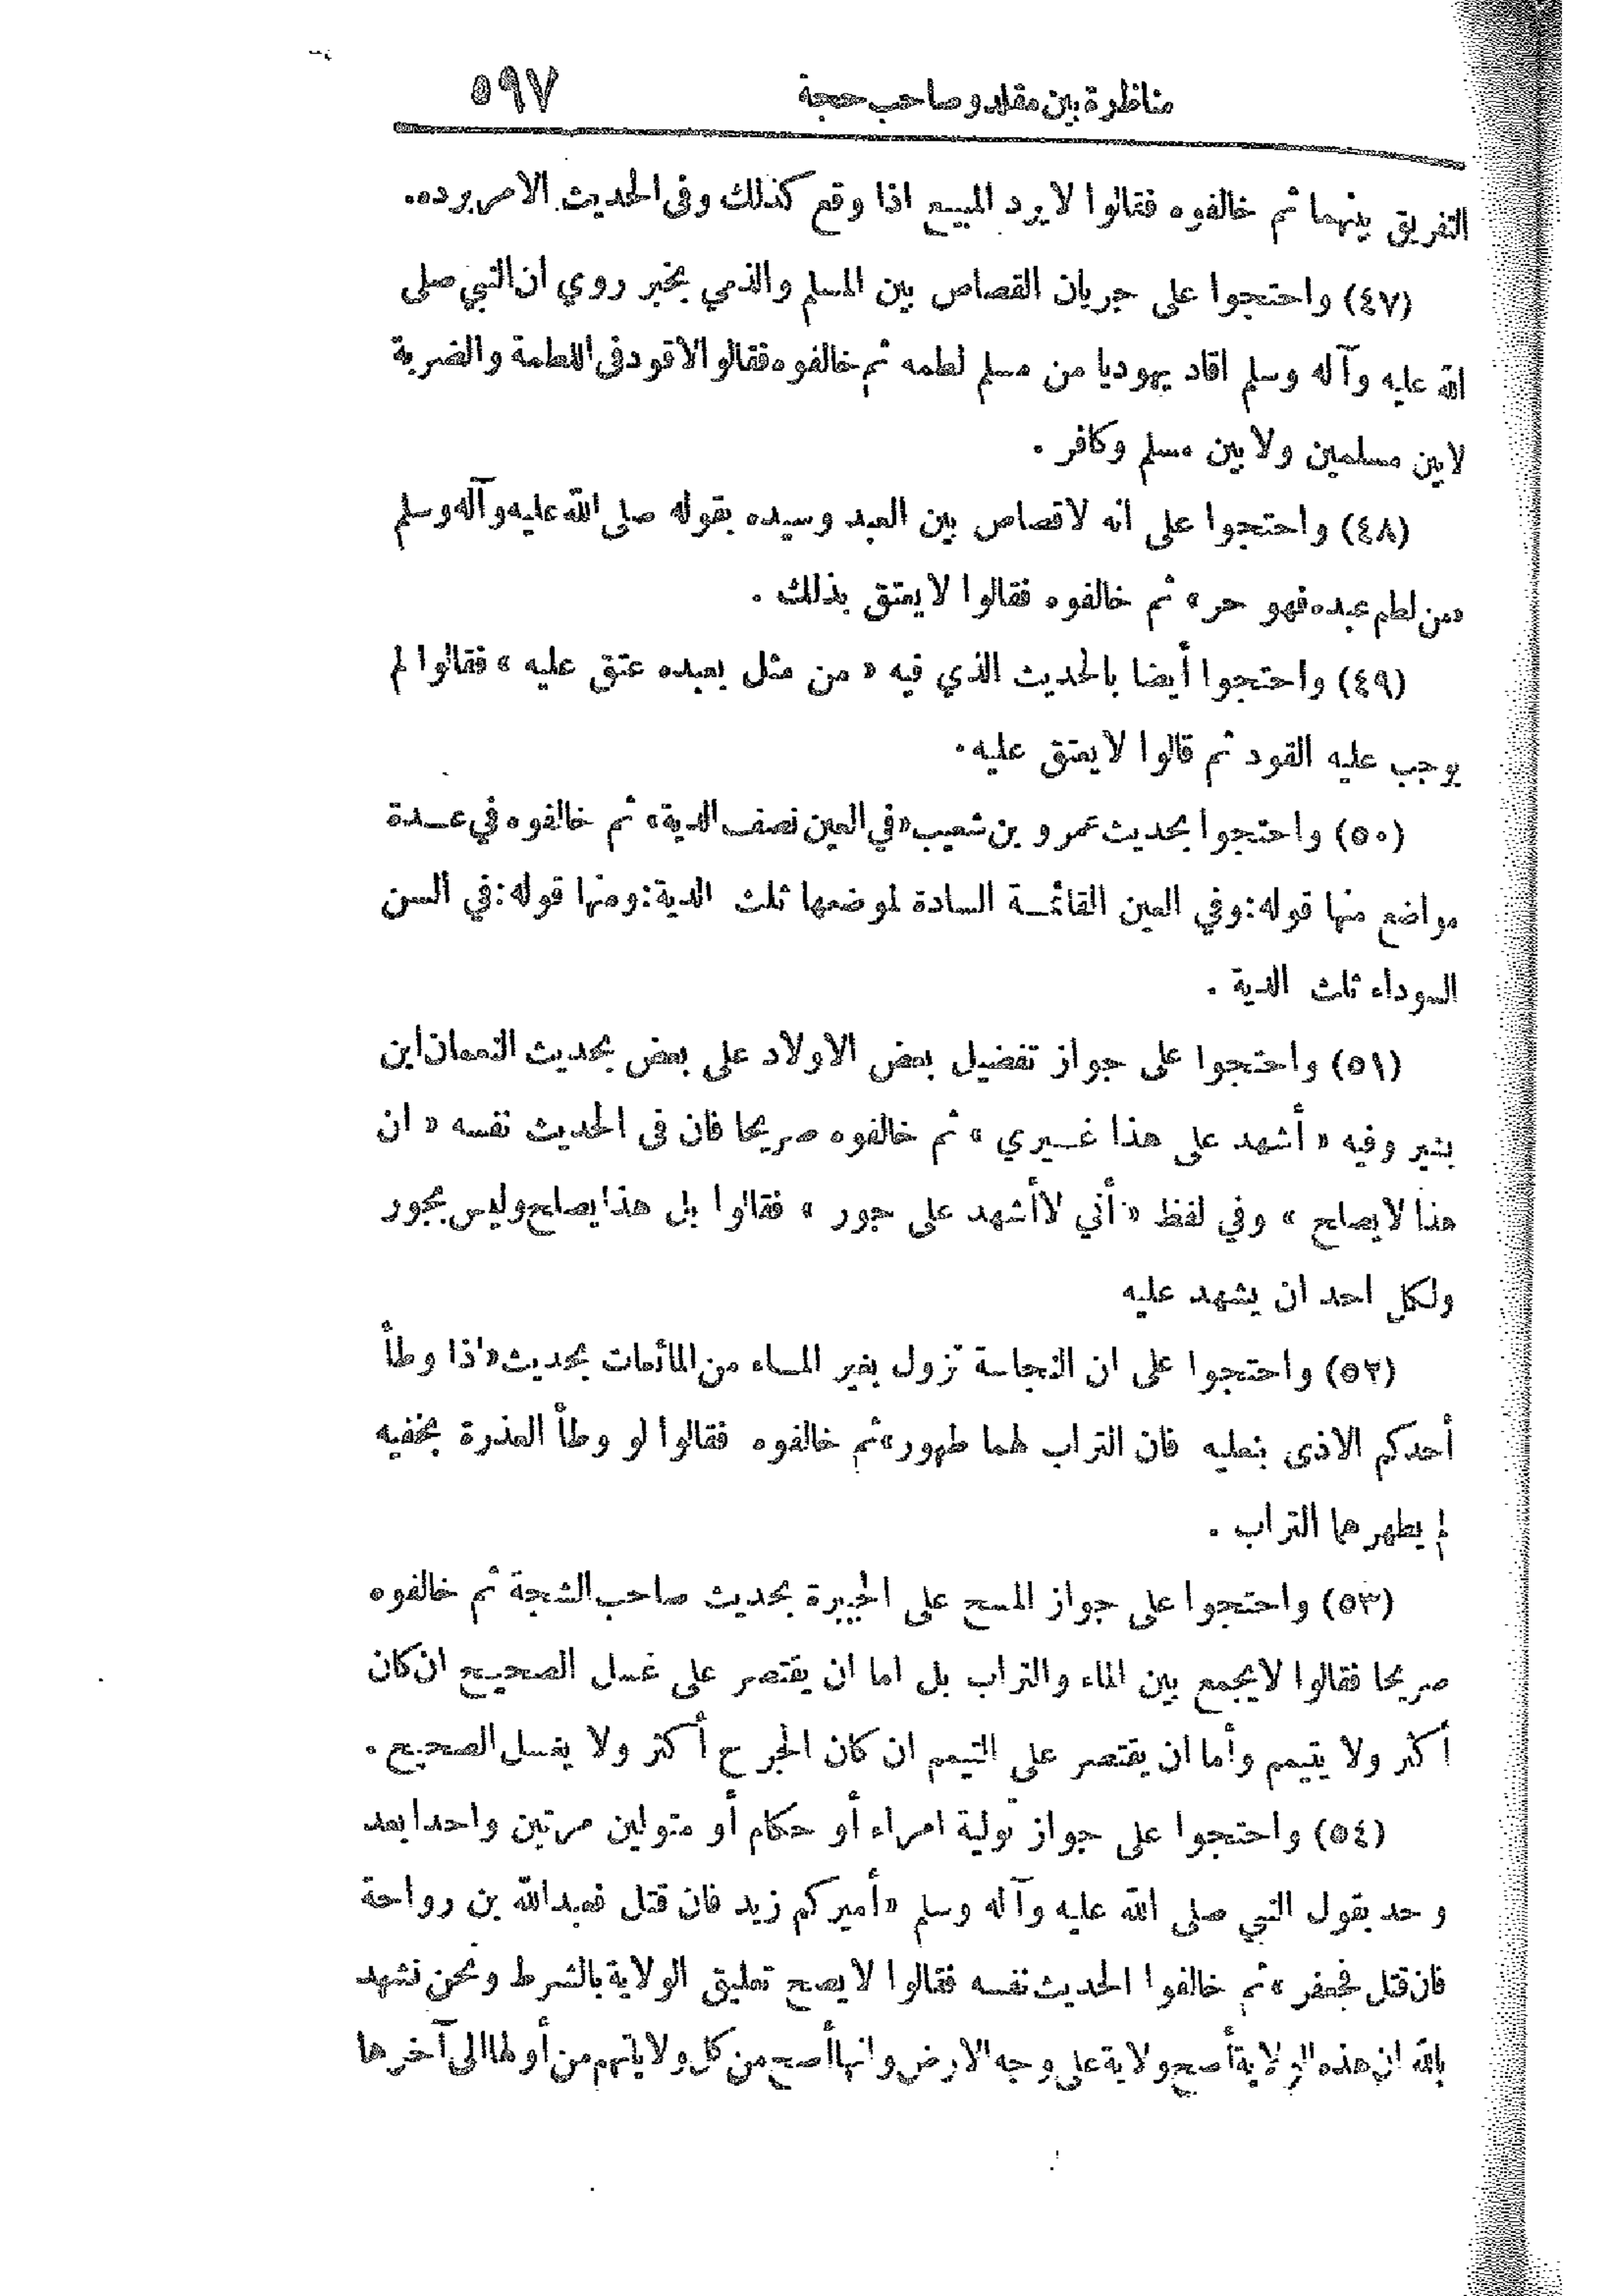 مناظرة بين مقلد وصاحب حجة ٥٩٧
التفريق بينهما ثم خالفوه فقالوا لا يرد المبيع اذا وقع كذلك وفى الحديث الامر برده.
(٤٧) واحتجوا على جريان القصاص بين المسلم والذمي بخبر روي ان النبي صلى
الله عليه وآله وسلم اقاد يهوديا من مسلم لطمه ثم خالفوه فقالوا لاقود فى اللطمة والضربة
لا بين مسلمين ولا بين مسلم وكافر .
(٤٨) واحتجوا على انه لا قصاص بين العبد وسيده بقوله صلى الله عليه وآله وسلم
«من لطم عبده فهو حر» ثم خالفوه فقالوا لا يعتق بذلك .
(٤٩) واحتجوا أيضا بالحديث الذي فيه « من مثل بعبده عتق عليه » فقالوا لم
يوجب عليه القود ثم قالوا لا يعتق عليه .
(٥٠) واحتجوا بحديث عمرو بن شعيب «في العين نصف الدية» ثم خالفوه في عدة
مواضع منها قوله: وفي العين القائمة السادة لموضعها ثلث الدية: ومنها قوله: في السن
السوداء ثلث الدية .
(٥١) واحتجوا على جواز تفضيل بعض الاولاد على بعض بحديث النعمان ابن
بشير وفيه « أشهد على هذا غيري » ثم خالفوه صريحا فان فى الحديث نفسه « ان
هذا لا يصلح » وفي لفظ « أني لا أشهد على جور » فقالوا بل هذا يصلح وليس بجور
ولكل احد ان يشهد عليه
(٥٢) واحتجوا على ان النجاسة تزول بغير الماء من المائعات بحديث «اذا وطأ
أحدكم الاذى بنعليه فان التراب لهما طهور» ثم خالفوه فقالوا لو وطأ العذرة بخفيه
لم يطهرهما التراب .
(٥٣) واحتجوا على جواز المسح على الجبيرة بحديث صاحب الشجة ثم خالفوه
صريحا فقالوا لا يجمع بين الماء والتراب بل اما ان يقتصر على غسل الصحيح ان كان
أكثر ولا يتيمم وأما ان يقتصر على التيمم ان كان الجرح أكثر ولا يغسل الصحيح .
(٥٤) واحتجوا على جواز تولية امراء أو حكام أو متولين مرتبين واحدا بعد
وحد بقول النبي صلى الله عليه وآله وسلم «أميركم زيد فان قتل فعبد الله بن رواحة
فان قتل فجعفر» ثم خالفوا الحديث نفسه فقالوا لا يصح تعليق الولاية بالشرط ونحن نشهد
بالله ان هذه الولاية أصح ولاية على وجه الارض وانها أصح من كل ولاياتهم من أولها الى آخرها